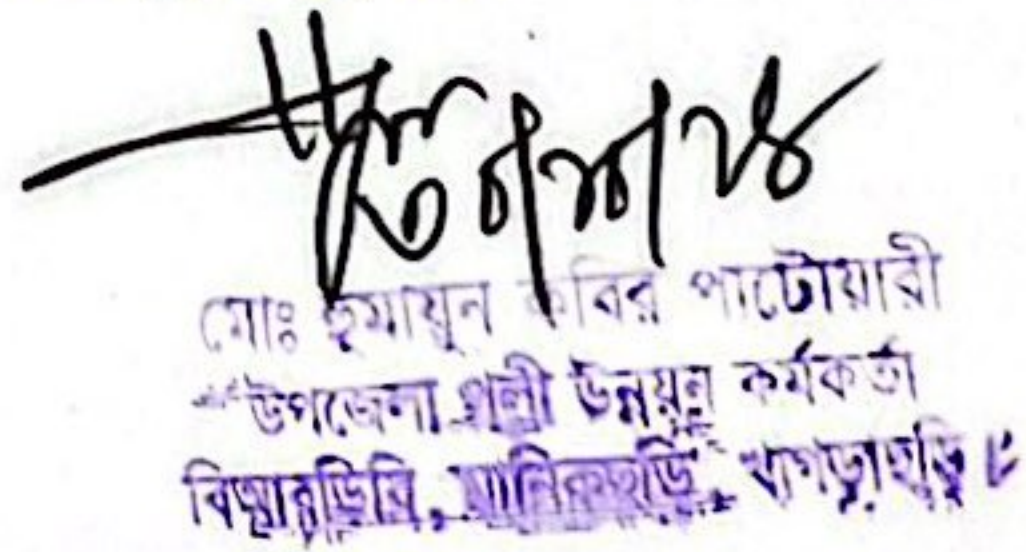 মোঃ হুমায়ুন কবির পাটোয়ারী
উপজেলা পল্লী উন্নয়ন কর্মকর্তা
বিআরডিবি, মানিকছড়ি, খাগড়াছড়ি।